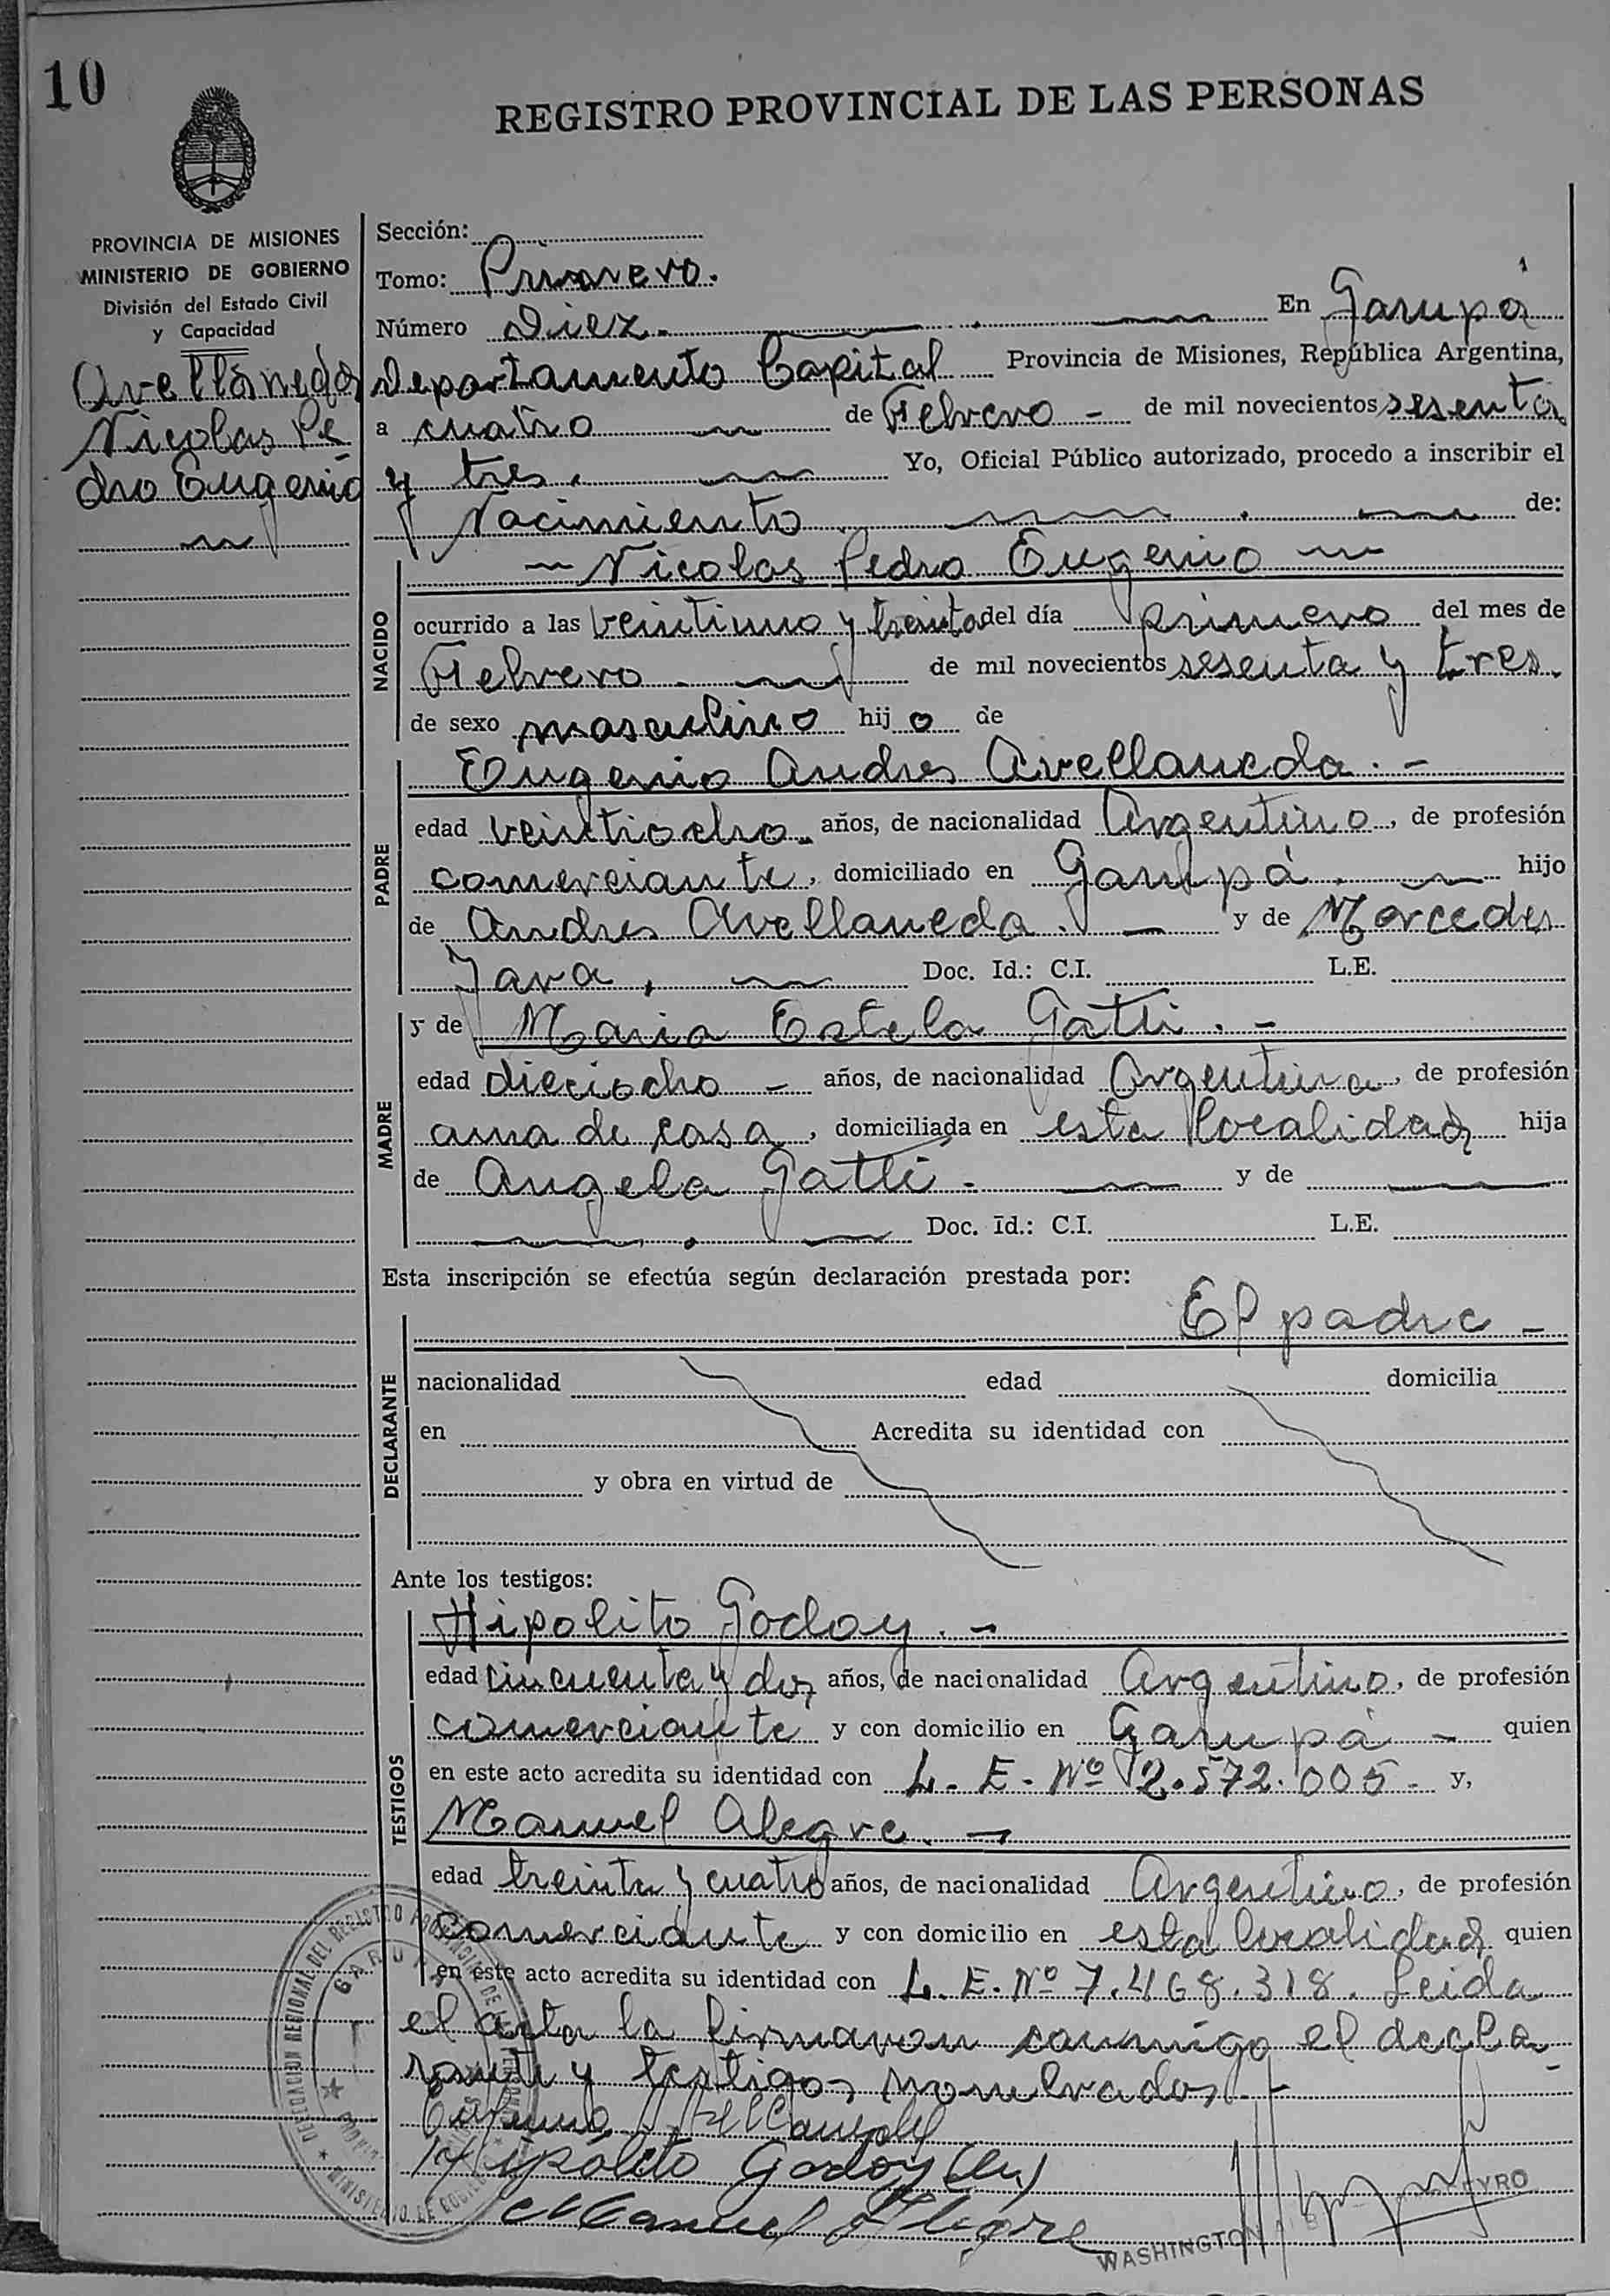 10
REGISTRO PROVINCIAL DE LAS PERSONAS
PROVINCIA DE MISIONES
MINISTERIO DE GOBIERNO
División del Estado Civil
y Capacidad
Avellaneda
Nicolas Pe
dro Eugenio
Sección:
Tomo: Primero.
Número Diez. En Garupá
Departamento Capital Provincia de Misiones, República Argentina,
a cuatro de Febrero - de mil novecientos sesenta
y tres. Yo, Oficial Público autorizado, procedo a inscribir el
Nacimiento de:
Nicolas Pedro Eugenio
NACIDO
ocurrido a las veintiuno y treinta del día primero del mes de
Febrero de mil novecientos sesenta y tres.
de sexo masculino hijo de
PADRE
Eugenio Andres Avellaneda. -
edad veintiocho años, de nacionalidad Argentino, de profesión
comerciante, domiciliado en Garupá. hijo
de Andres Avellaneda. y de Mercedes
Jara. Doc. Id.: C.I. L.E.
MADRE
y de Maria Estela Gatti. -
edad dieciocho - años, de nacionalidad Argentina, de profesión
ama de casa, domiciliada en esta localidad hija
de Angela Gatti - y de
Doc. Id.: C.I. L.E.
Esta inscripción se efectúa según declaración prestada por:
El padre -
DECLARANTE
nacionalidad edad domicilia
en Acredita su identidad con
y obra en virtud de
Ante los testigos:
TESTIGOS
Hipolito Godoy. -
edad cincuenta y dos años, de nacionalidad Argentino, de profesión
comerciante y con domicilio en Garupá - quien
en este acto acredita su identidad con L. E. Nº 2.572.005 - y,
Manuel Alegre. -
edad treinta y cuatro años, de nacionalidad Argentino, de profesión
comerciante y con domicilio en esta localidad quien
en este acto acredita su identidad con L. E. Nº 7.468.318. Leida
el acta la firmaron conmigo el decla
rante y testigos nombrados. -
Hipólito Godoy
Manuel Alegre
WASHINGTON
DELEGACION REGIONAL DEL REGISTRO PROVINCIAL DE LAS PERSONAS
GARUPA
MINISTERIO DE GOBIERNO